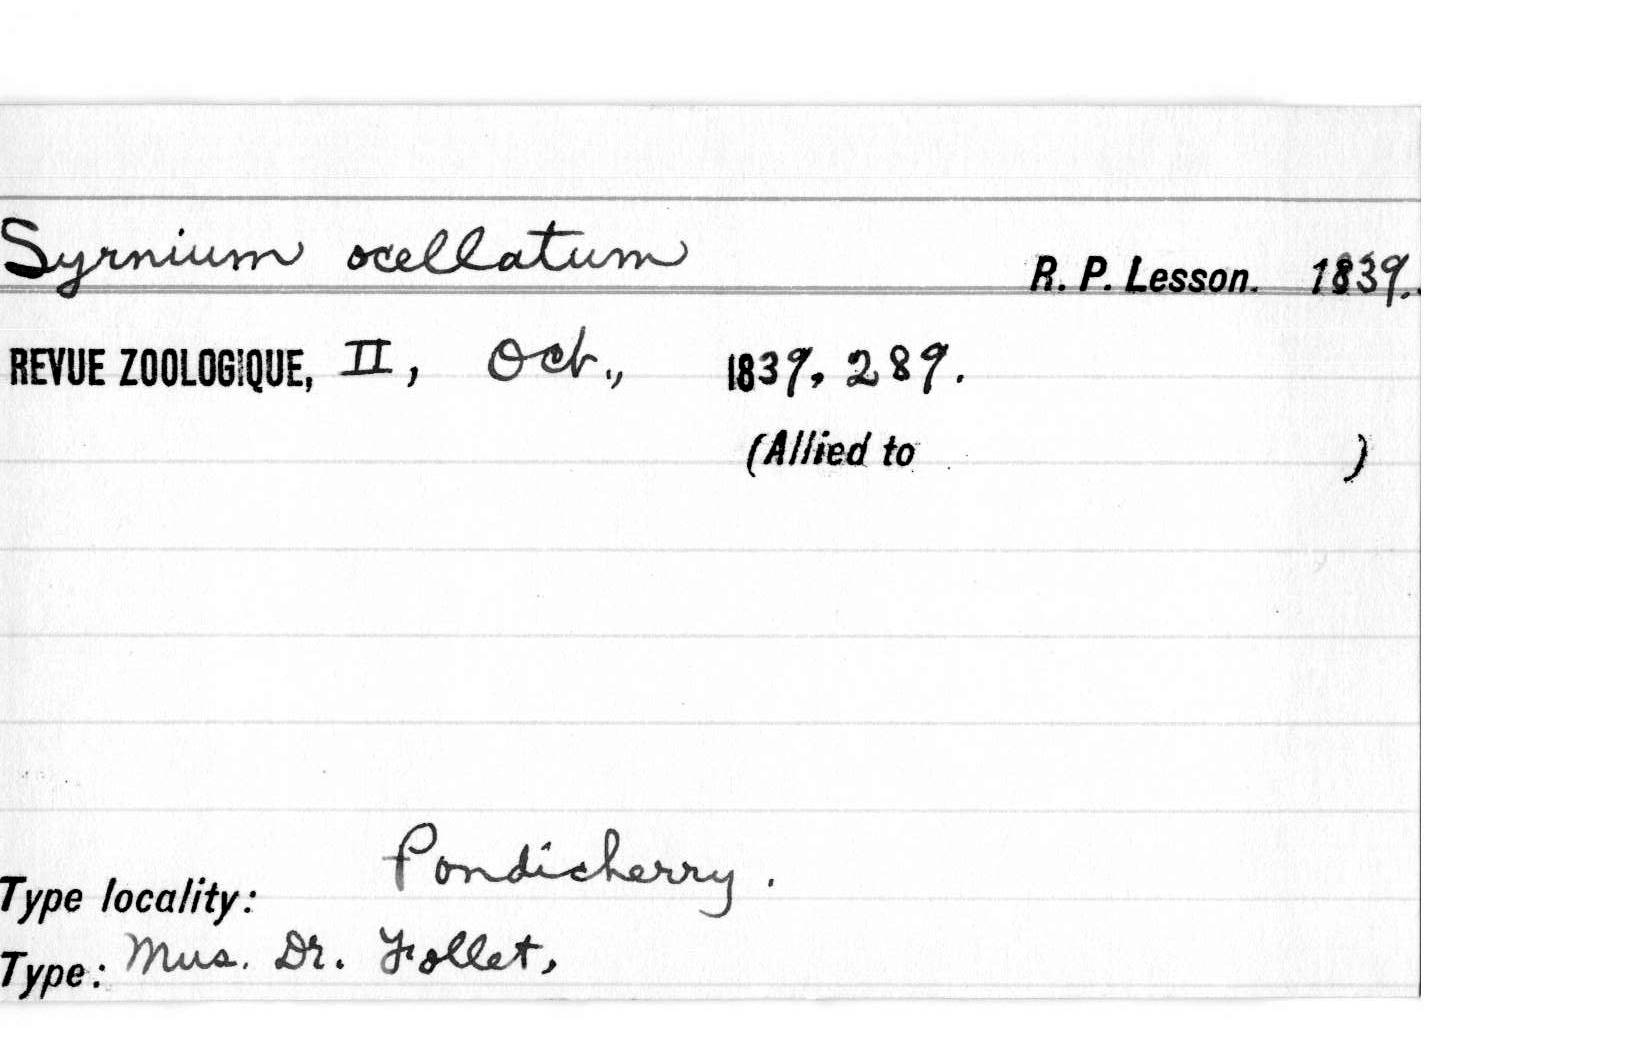 Syrnium ocellatum R. P. Lesson. 1839.
REVUE ZOOLOGIQUE, II, Oct., 1839, 289.
(Allied to )
Pondicherry.
Type locality:
Type: Mus. Dr. Follet,